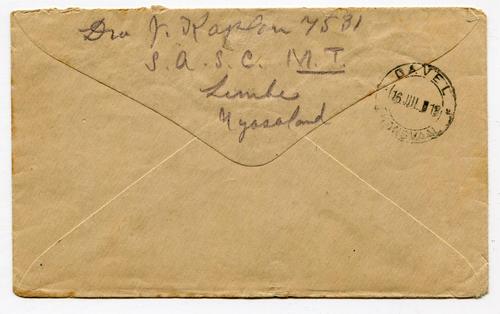 Dvr J. Kaplan 7531
S. A. S. C. M.T.
Limbe
Nyasaland
DAVEL
16 JUL 18
TRANSVAAL